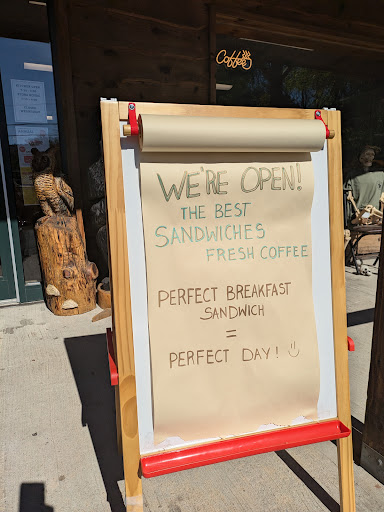 Coffee
WE'RE OPEN!
THE BEST
SANDWICHES
FRESH COFFEE
PERFECT BREAKFAST
SANDWICH
=
PERFECT DAY! :)